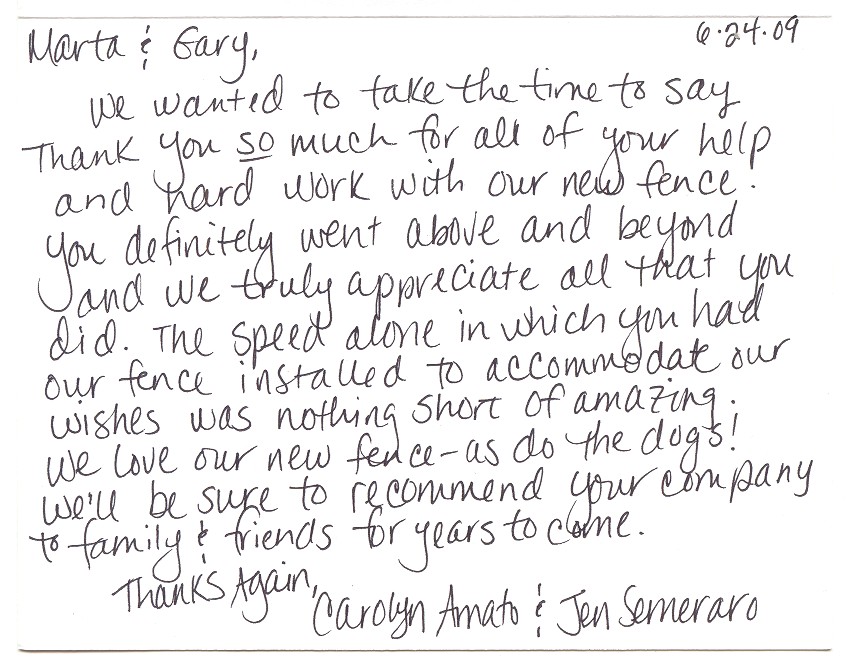 6.24.09
Marta & Gary,
We wanted to take the time to say
Thank you so much for all of your help
and hard work with our new fence.
You definitely went above and beyond
and we truly appreciate all that you
did. The speed alone in which you had
our fence installed to accommodate our
wishes was nothing short of amazing.
We love our new fence - as do the dogs!
We'll be sure to recommend your company
to family & friends for years to come.
Thanks Again,
Carolyn Amato & Jen Semeraro